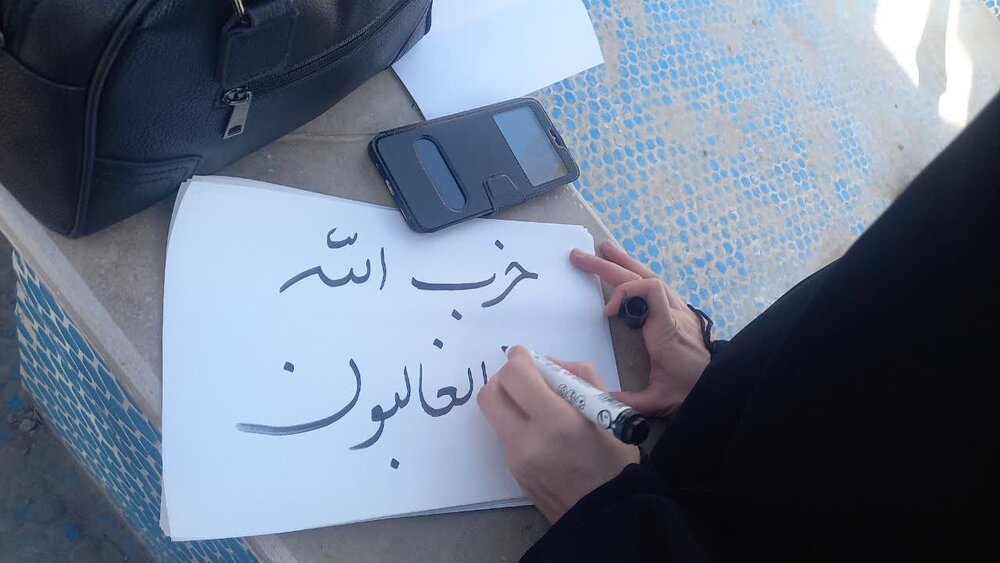 حزب الله
الغالبون